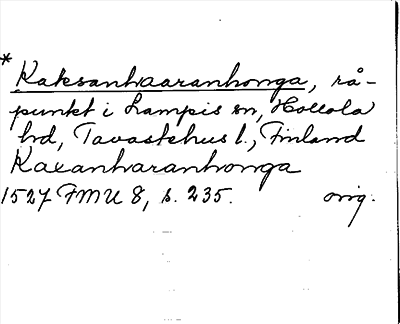 * Kaksanhaaranhonga, rå-
punkt i Lampis sn, Hollola
hd, Tavastehus l., Finland
Kaxanharanhonga
1527 FMU 8, s. 235. orig.